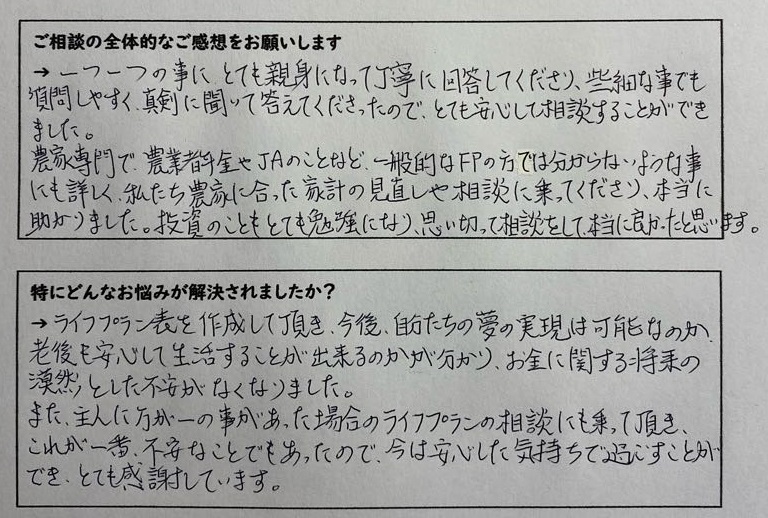 ご相談の全体的なご感想をお願いします
→一つ一つの事に、とても親身になって丁寧に回答してくださり、些細な事でも
質問しやすく、真剣に聞いて答えてくださったので、とても安心して相談することができ
ました。
農家専門で、農業者年金やJAのことなど、一般的なFPの方では分からないような事
にも詳しく、私たち農家に合った家計の見直しや相談に乗ってくださり、本当に
助かりました。投資のこともとても勉強になり、思い切って相談をして、本当に良かったと思います。
特にどんなお悩みが解決されましたか？
→ライフプラン表を作成して頂き、今後、自分たちの夢の実現は可能なのか、
老後も安心して生活することが出来るのかが分かり、お金に関する将来の
漠然とした不安がなくなりました。
また、主人に万が一の事があった場合のライフプランの相談にも乗って頂き、
これが一番、不安なことでもあったので、今は安心した気持ちで過ごすことが
でき、とても感謝しています。